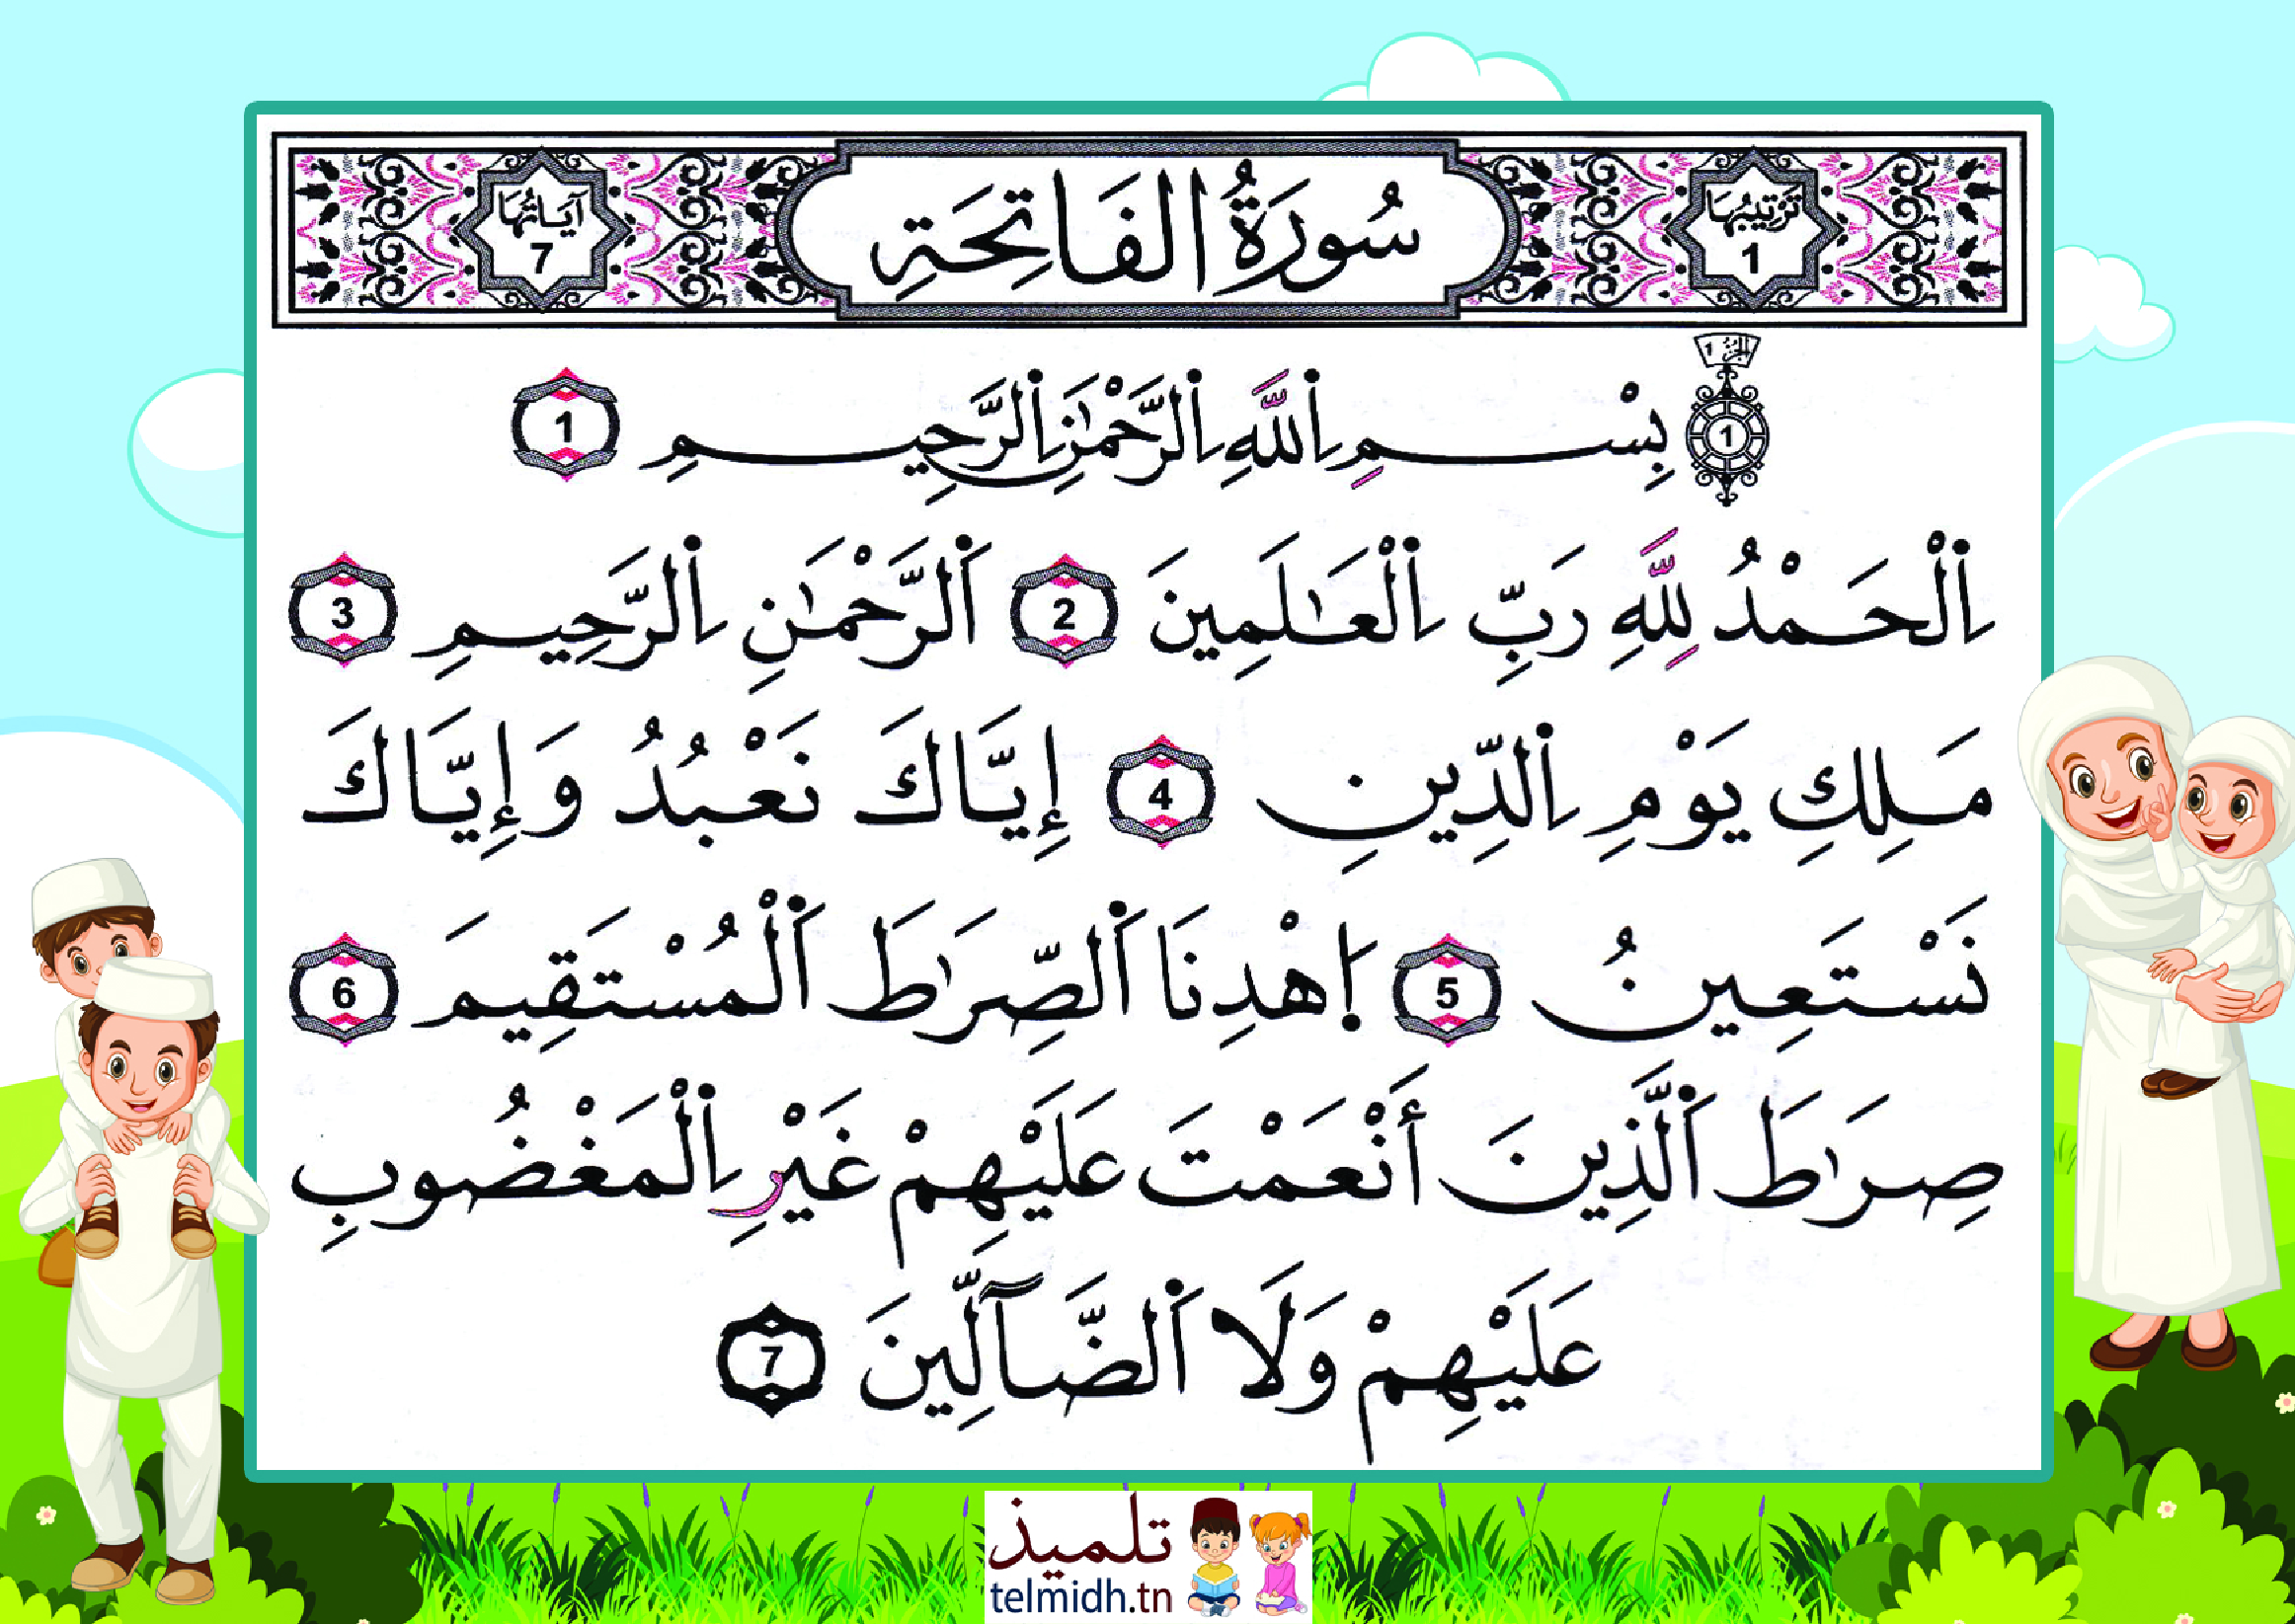 تَرْتِيبُهَا 1
سُورَةُ الفَاتِحَةِ
آيَاتُهَا 7
الجزء 1
1
بِسْمِ اِ۬للَّهِ اِ۬لرَّحْمَٰنِ اِ۬لرَّحِيمِ 1
اِ۬لْحَمْدُ لِلَّهِ رَبِّ اِ۬لْعَٰلَمِينَ 2 اَ۬لرَّحْمَٰنِ اِ۬لرَّحِيمِ 3
مَلِكِ يَوْمِ اِ۬لدِّينِ 4 إِيَّاكَ نَعْبُدُ وَإِيَّاكَ
نَسْتَعِينُ 5 اِ۪هْدِنَا اَ۬لصِّرَٰطَ اَ۬لْمُسْتَقِيمَ 6
صِرَٰطَ اَ۬لَّذِينَ أَنْعَمْتَ عَلَيْهِمْ غَيْرِ اِ۬لْمَغْضُوبِ
عَلَيْهِمْ وَلَا اَ۬لضَّآلِّينَ 7
تلميذ
telmidh.tn